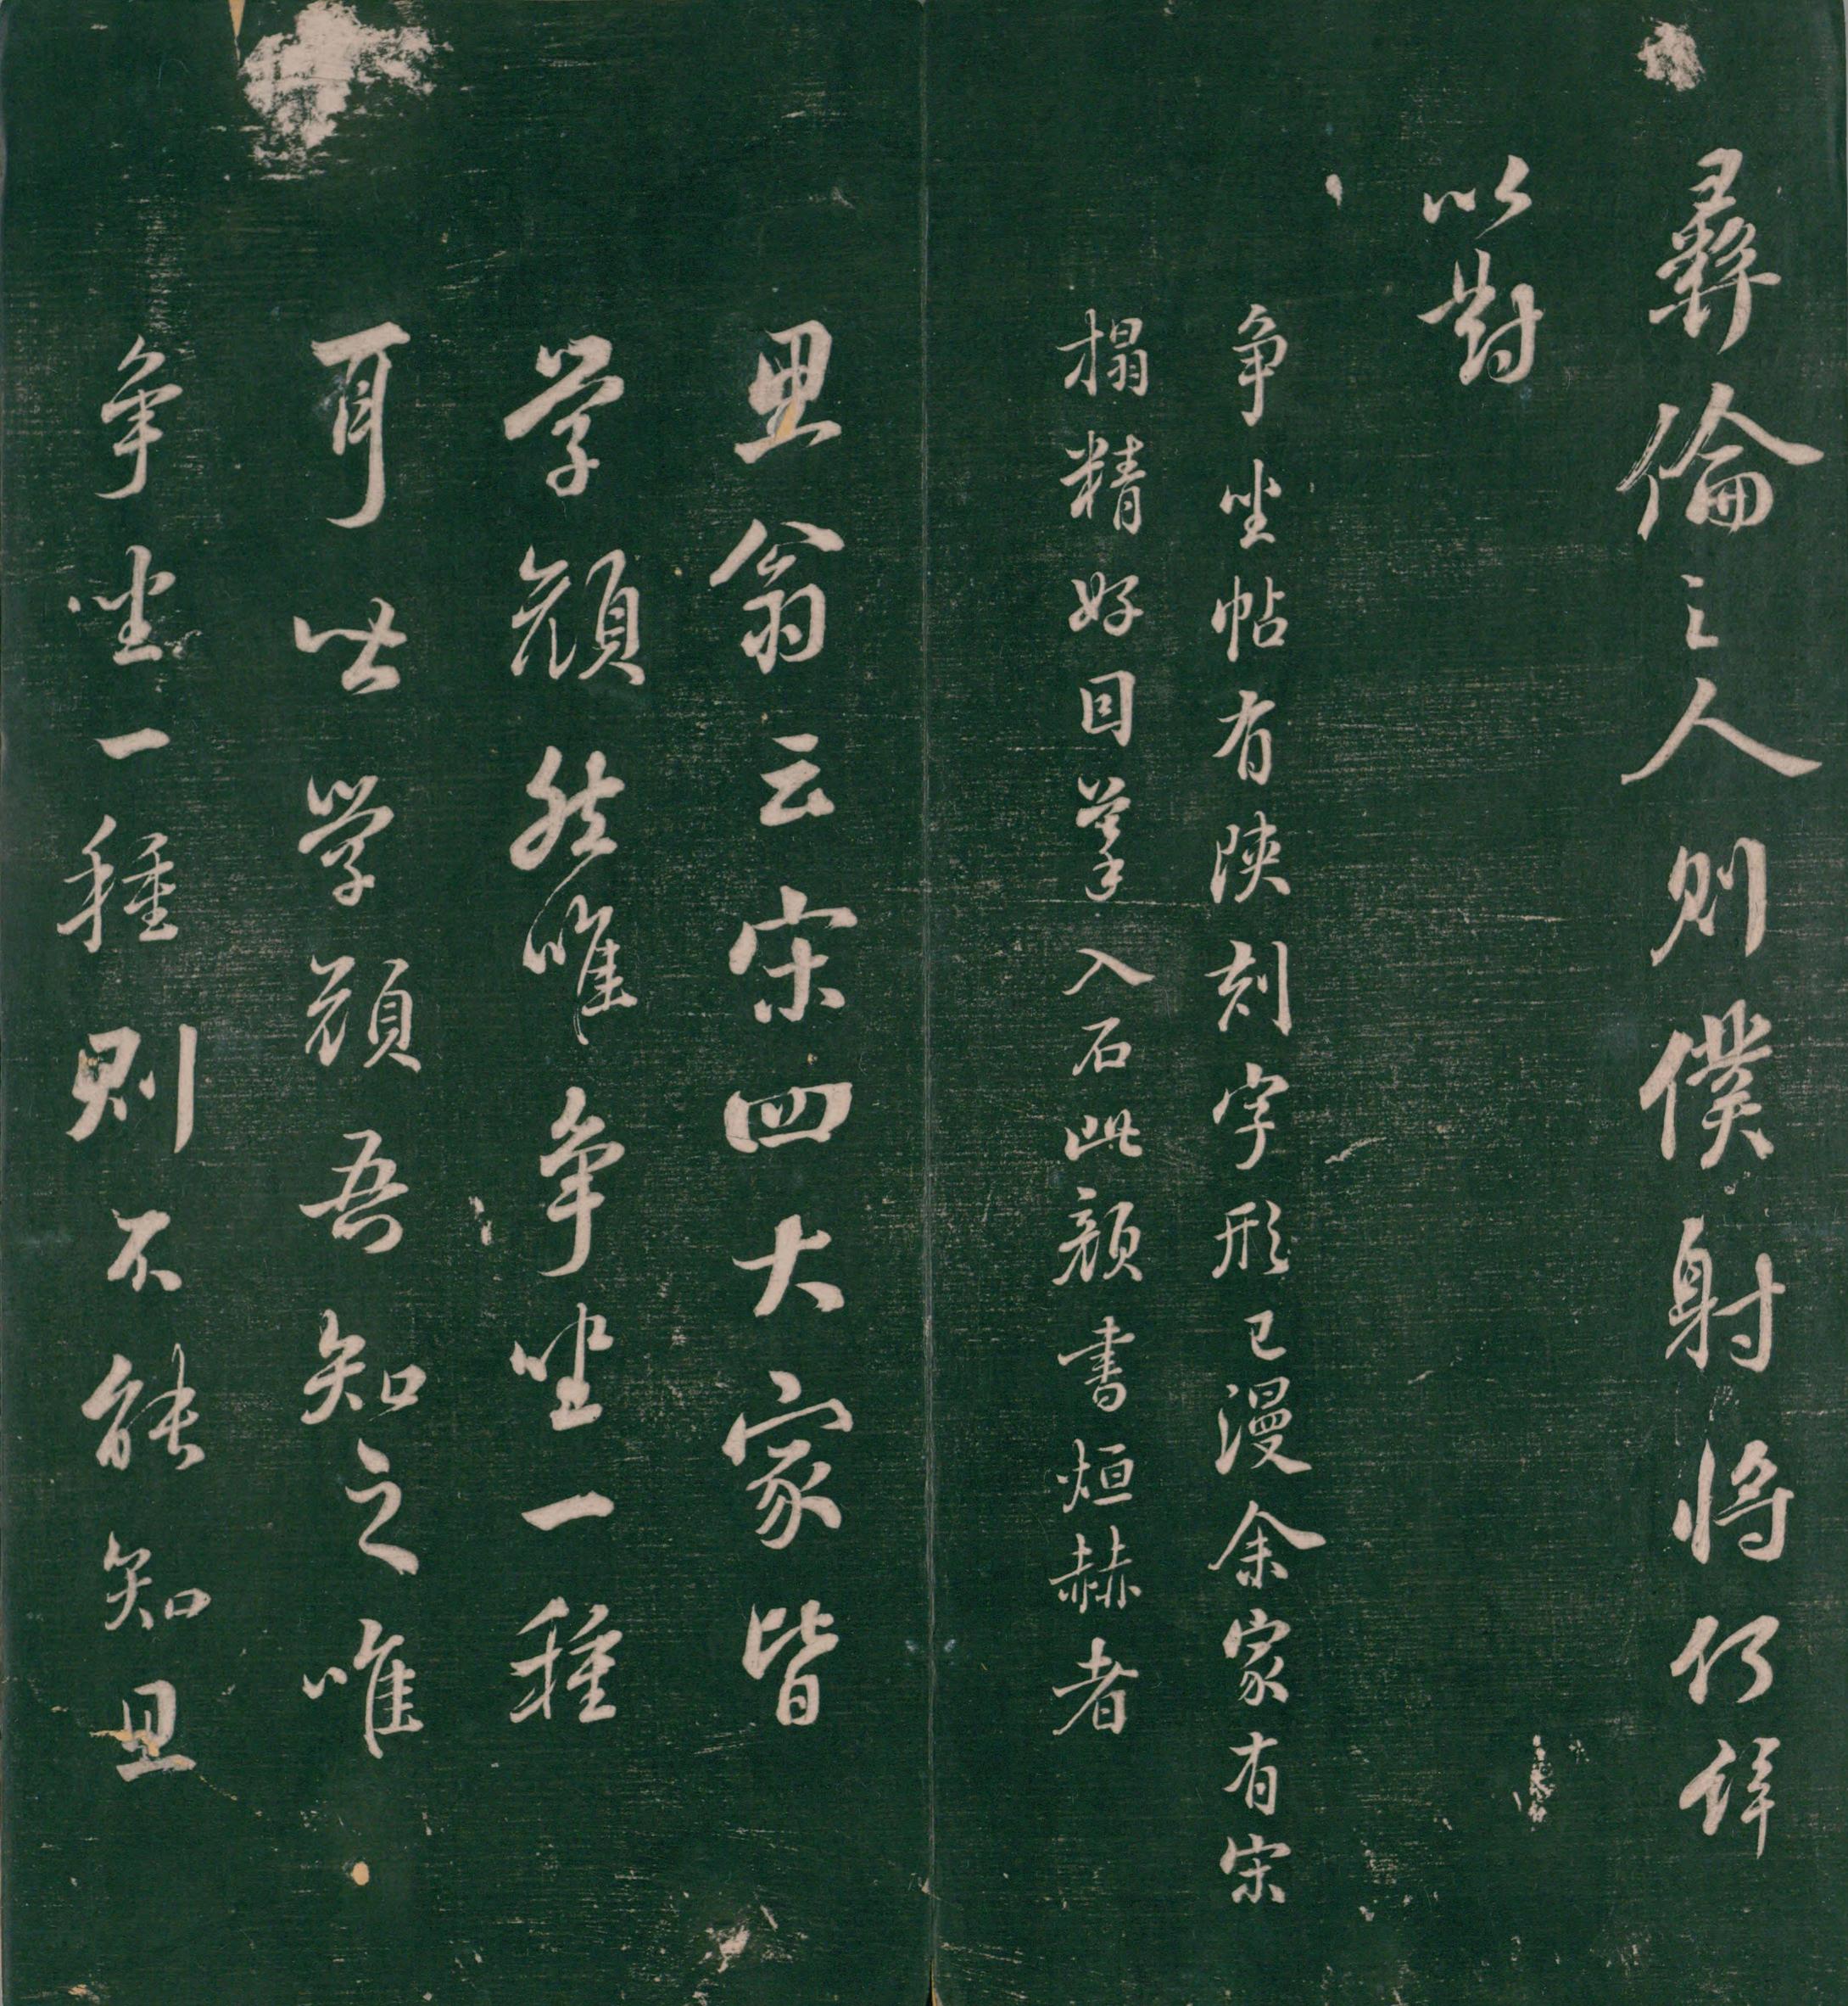 彝倫之人則僕射將何辭
以對
爭坐帖有陝刻字形已漫余家有宋
搨精好因摹入石此顏書烜赫者
思翁云宋四大家皆
學顏然唯爭坐一種
耳此學顏吾知之唯
爭坐一種則不能知思